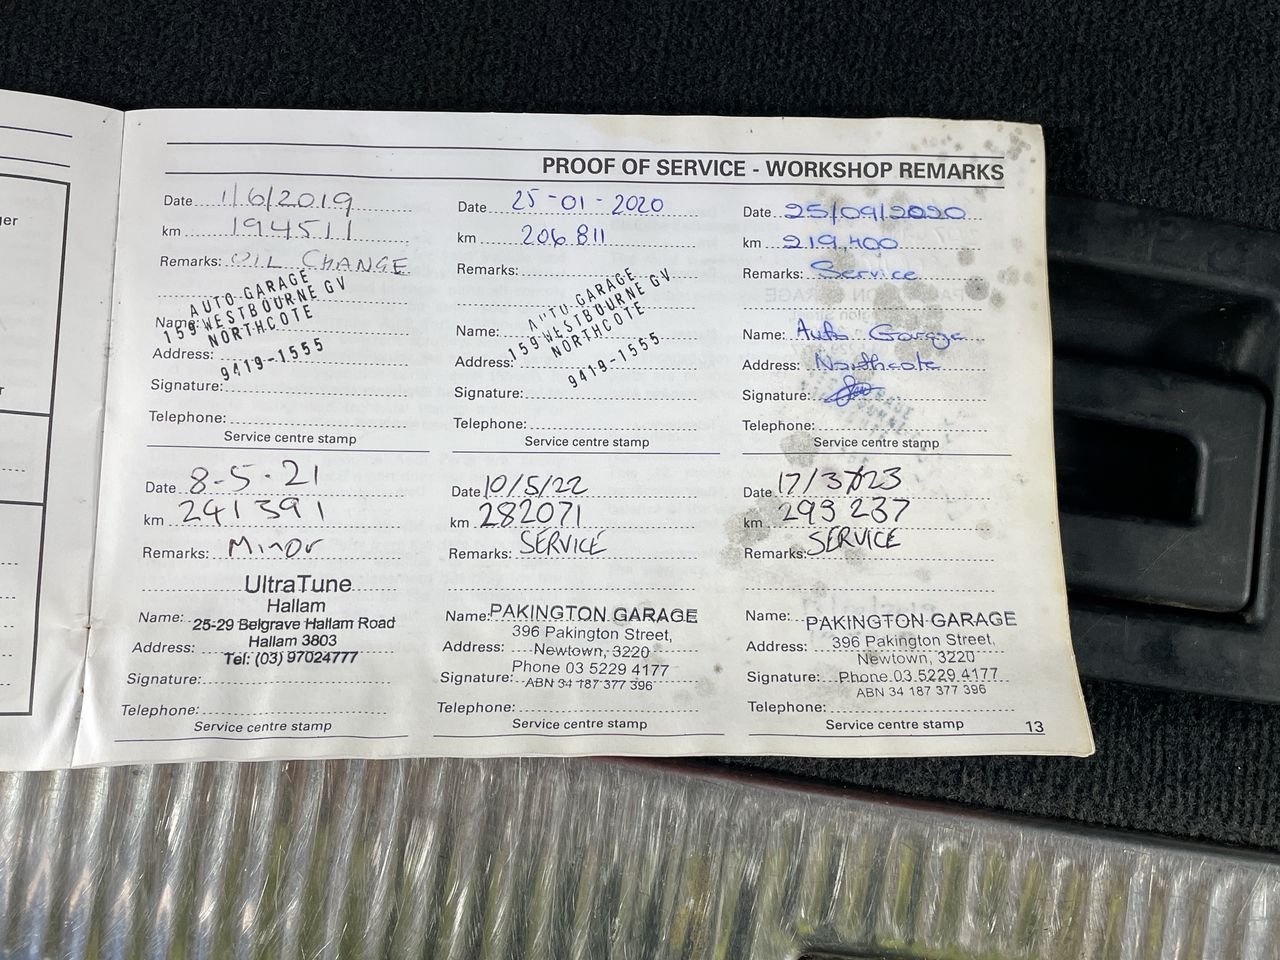 ger
r
PROOF OF SERVICE - WORKSHOP REMARKS
Date 1/6/2019
km 194511
Remarks: OIL CHANGE
AUTO GARAGE
Name:
159 WESTBOURNE GV
NORTHCOTE
Address:
9419-1555
Signature:
Telephone:
Service centre stamp
Date 25-01-2020
km 206 811
Remarks:
AUTO GARAGE
Name:
159 WESTBOURNE GV
NORTHCOTE
Address:
9419-1555
Signature:
Telephone:
Service centre stamp
Date 25/09/2020
km 219,400
Remarks: Service
Name: Auto Garage
Address: Northcote
Signature:
Telephone:
Service centre stamp
Date 8-5-21
km 241391
Remarks: Minor
UltraTune
Hallam
Name: 25-29 Belgrave Hallam Road
Hallam 3803
Address: Tel: (03) 97024777
Signature:
Telephone:
Service centre stamp
Date 10/5/22
km 282071
Remarks: SERVICE
Name: PAKINGTON GARAGE
396 Pakington Street,
Address: Newtown, 3220
Phone 03 5229 4177
Signature: ABN 34 187 377 396
Telephone:
Service centre stamp
Date 17/3/23
km 293 237
Remarks: SERVICE
Name: PAKINGTON GARAGE
396 Pakington Street,
Address: Newtown, 3220
Signature: Phone 03 5229 4177
ABN 34 187 377 396
Telephone:
Service centre stamp
13